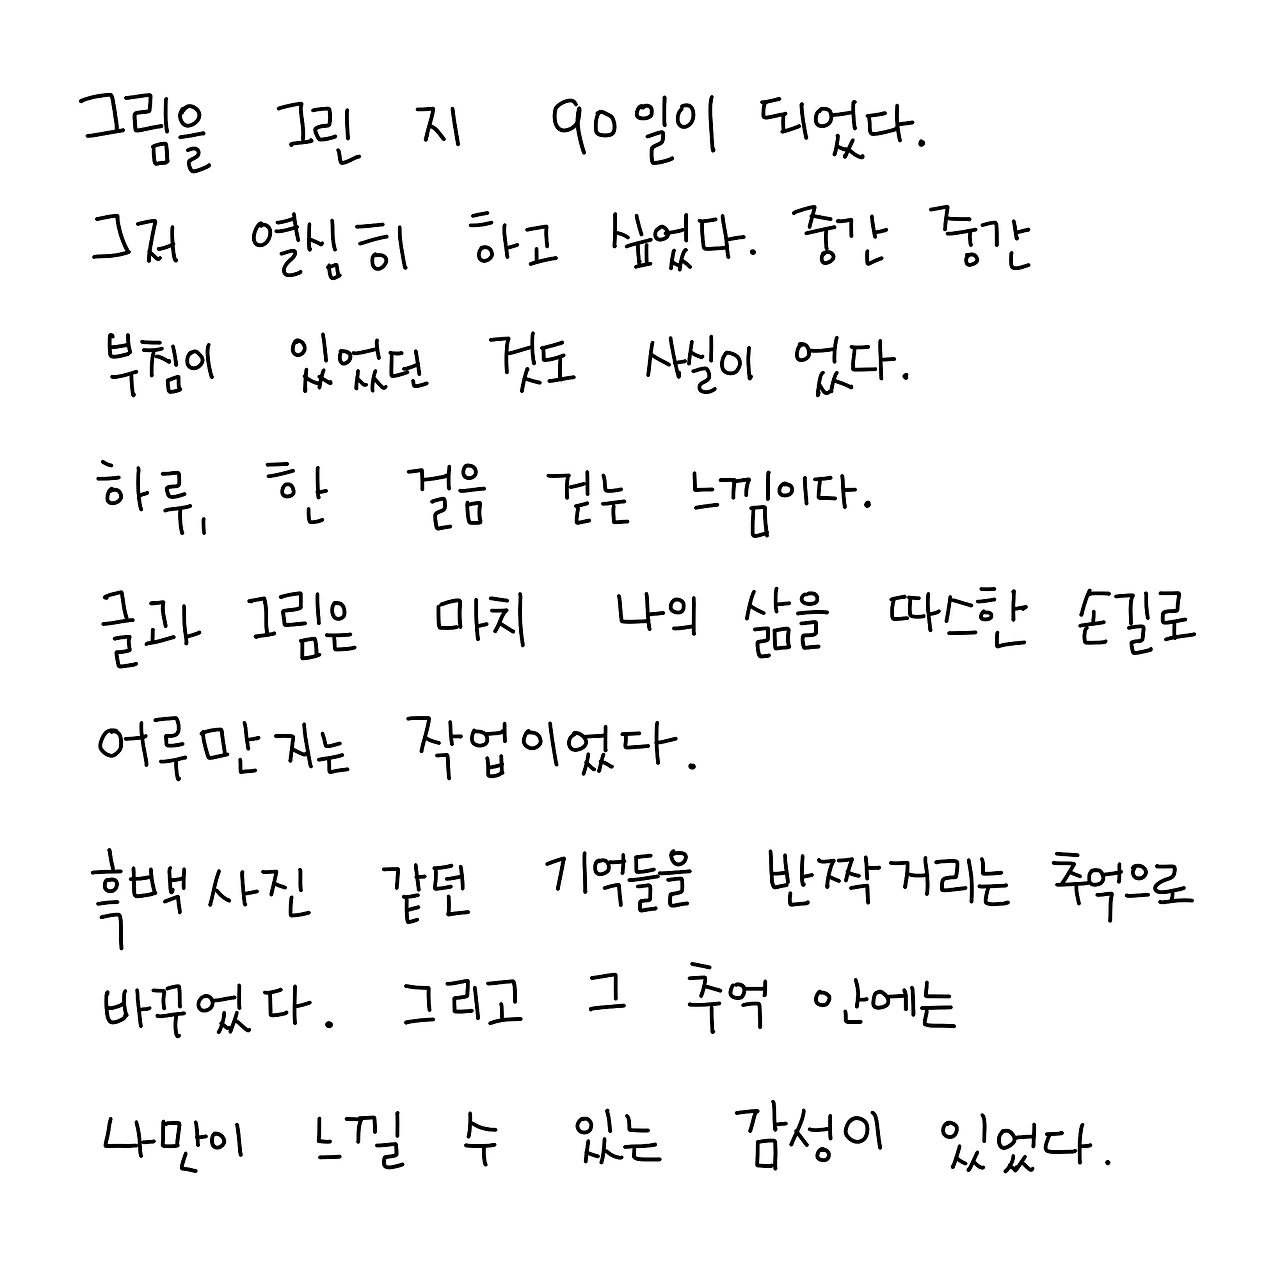 그림을 그린 지 90일이 되었다.
그저 열심히 하고 싶었다. 중간 중간
부침이 있었던 것도 사실이 었다.
하루, 한 걸음 걷는 느낌이다.
글과 그림은 마치 나의 삶을 따스한 손길로
어루만지는 작업이었다.
흑백사진 같던 기억들을 반짝거리는 추억으로
바꾸었다. 그리고 그 추억 안에는
나만이 느낄 수 있는 감성이 있었다.